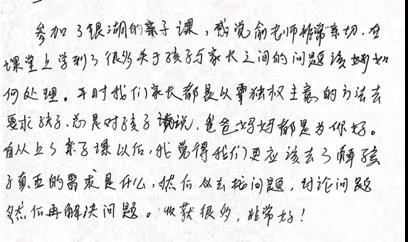 参加了银湖的亲子课，感觉俞老师非常亲切，在
课堂上学到了很多关于孩子与家长之间的问题该如
何处理。平时我们家长都是以单独权主义的方法去
要求孩子，总是对孩子说，爸爸妈妈都是为你好。
自从上了亲子课以后，我觉得我们更应该去了解孩
子真正的需求是什么，然后从去找问题，讨论问题
然后再解决问题。收获很多，非常好！